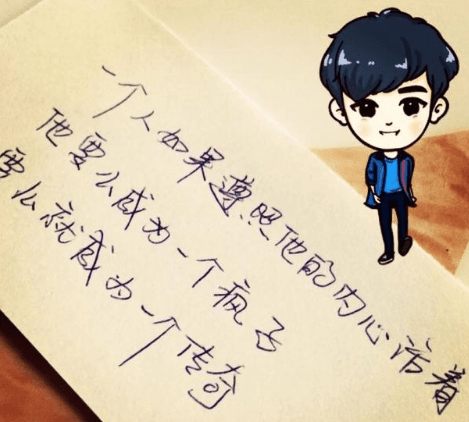 一个人如果遵照他的内心活着
他要么成为一个疯子
要么就成为一个传奇